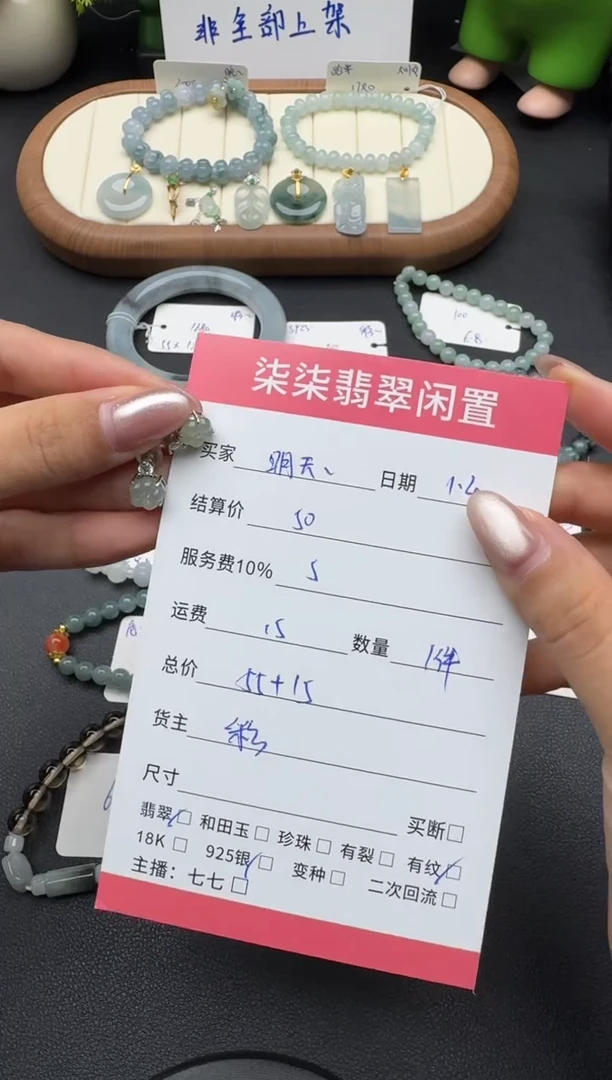 非全部上架
1780
100
68
柒柒翡翠闲置
买家 明天、 日期
结算价 50
服务费10% 5
运费 15 数量 1件
总价 55+15
货主
尺寸 买断□
翡翠□ 和田玉□ 珍珠□ 有裂□ 有纹□
18K□ 925银□ 变种□ 二次回流□
主播：七七□